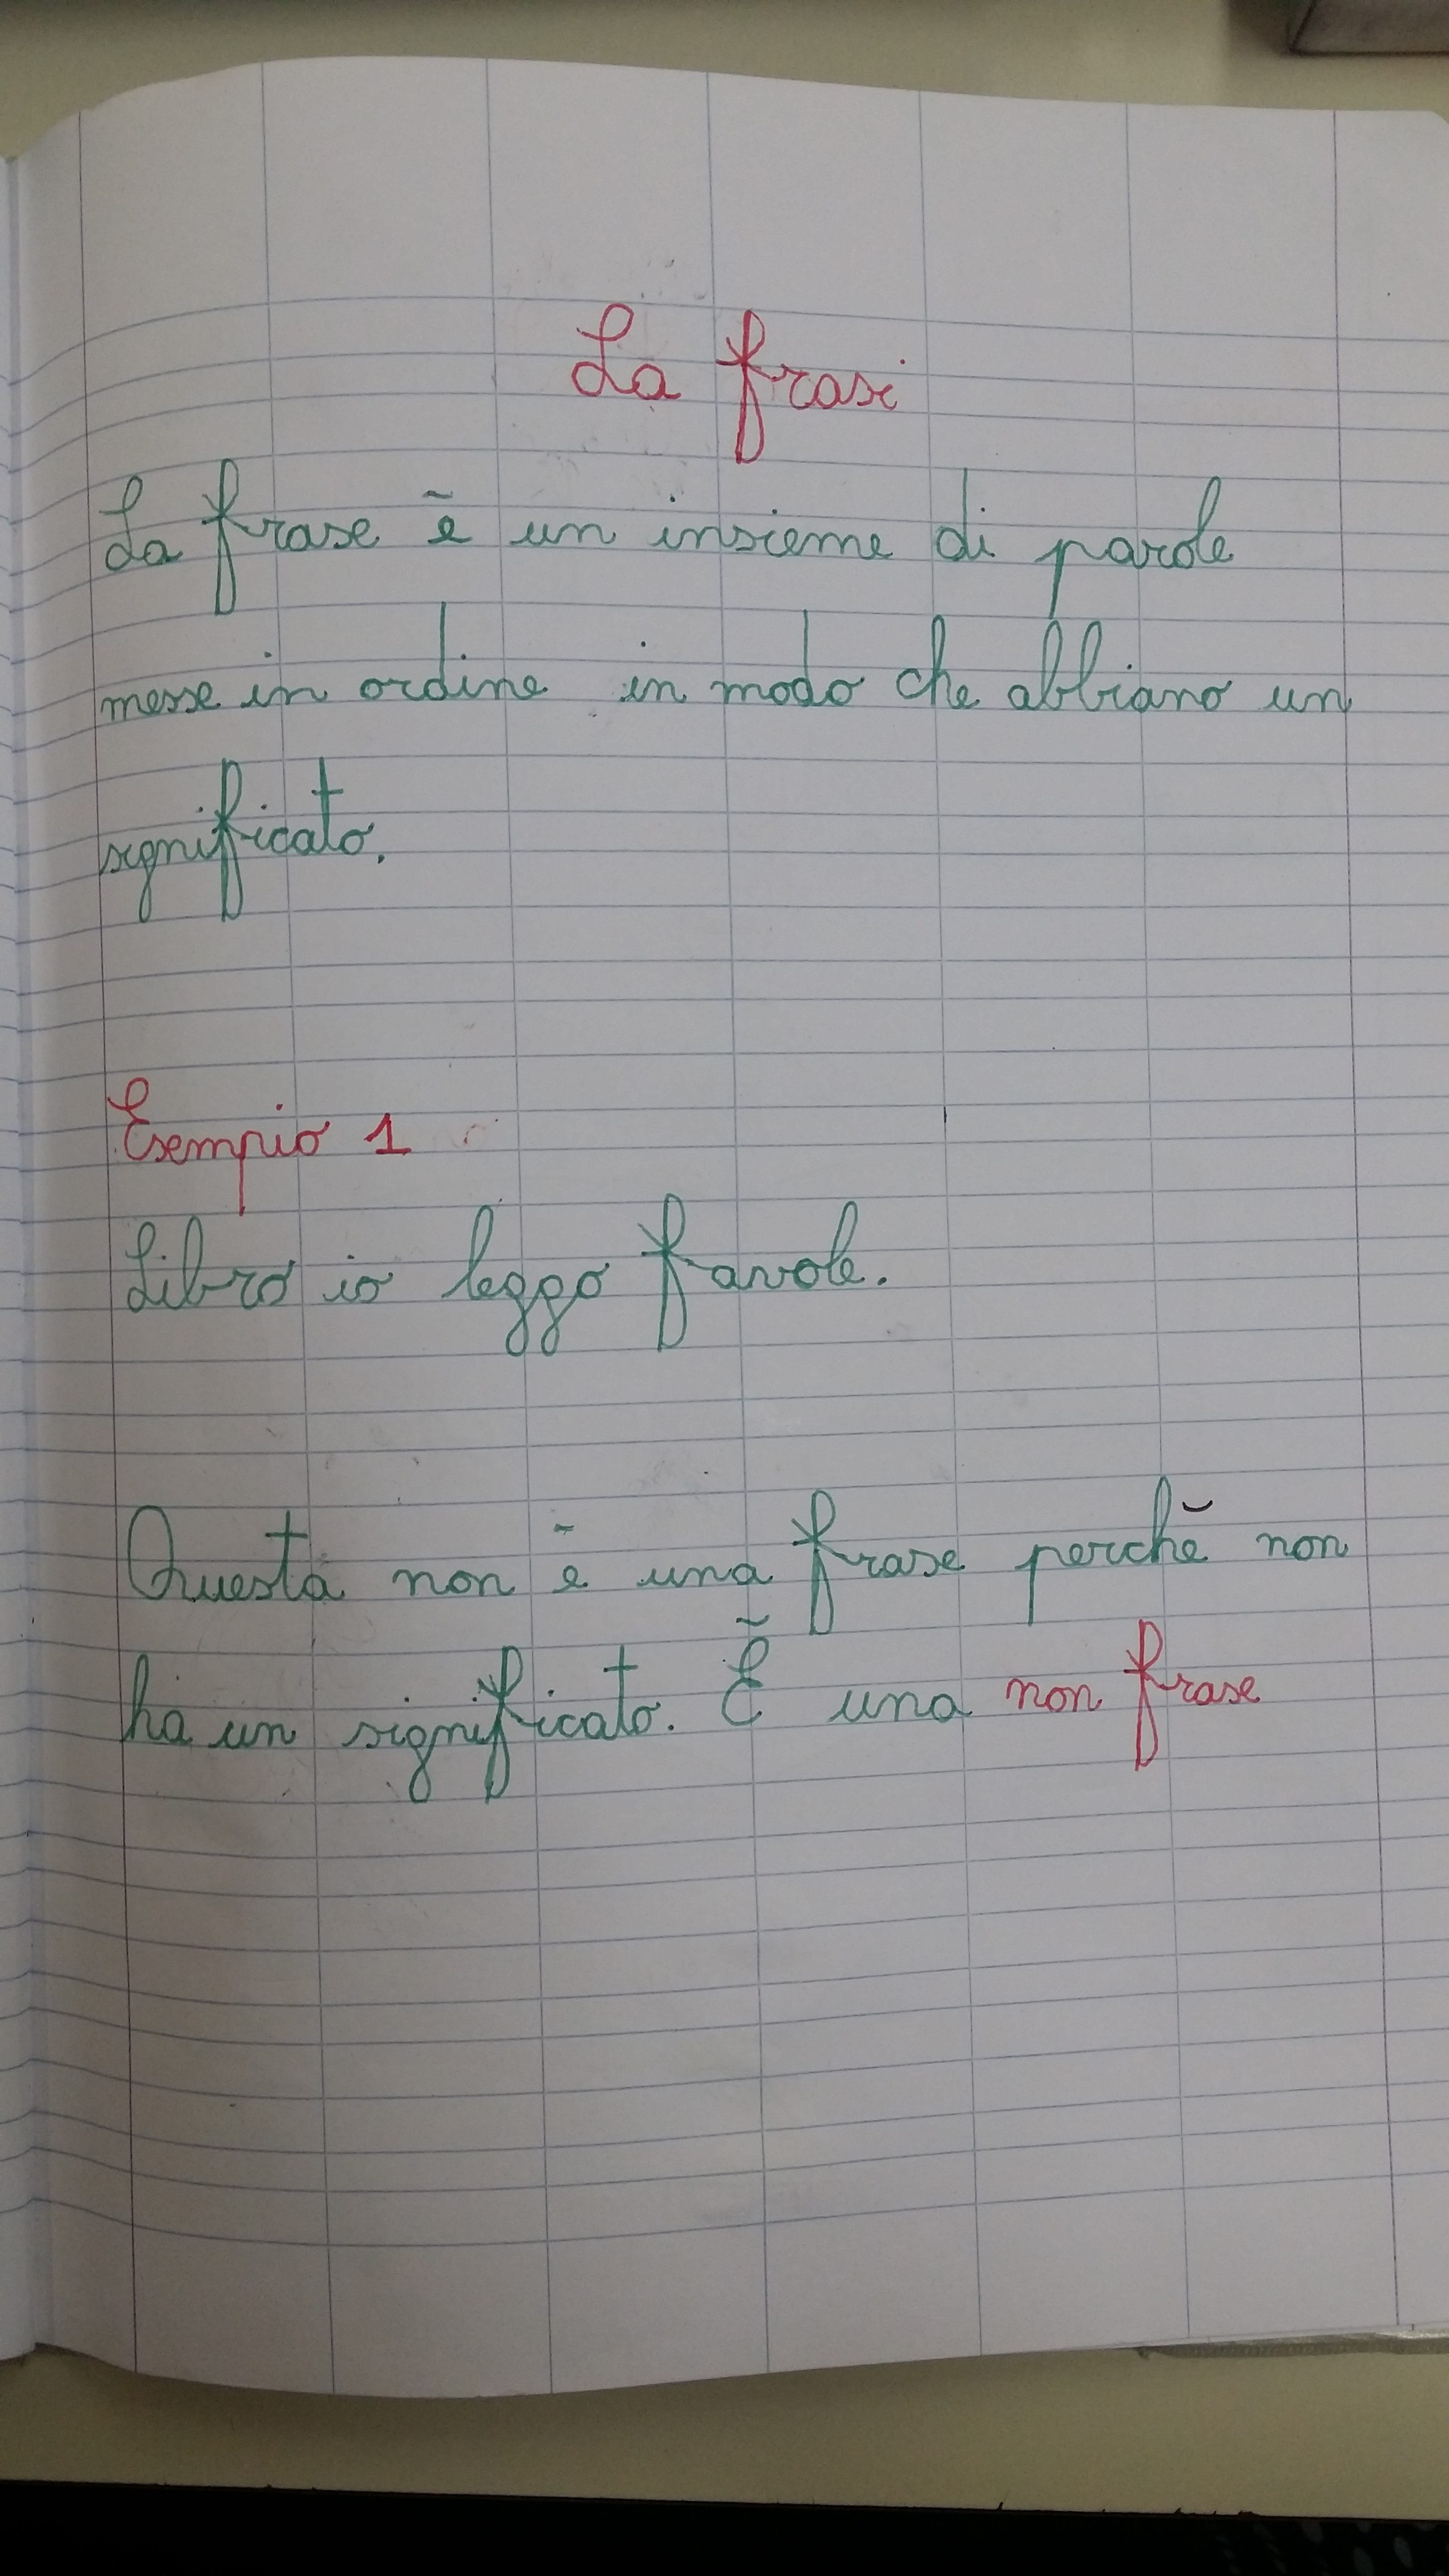 La frasi
La frase è un insieme di parole
messe in ordine in modo che abbiano un
significato.
Esempio 1
Libro io leggo favole.
Questa non è una frase perchè non
ha un significato. È una non frase